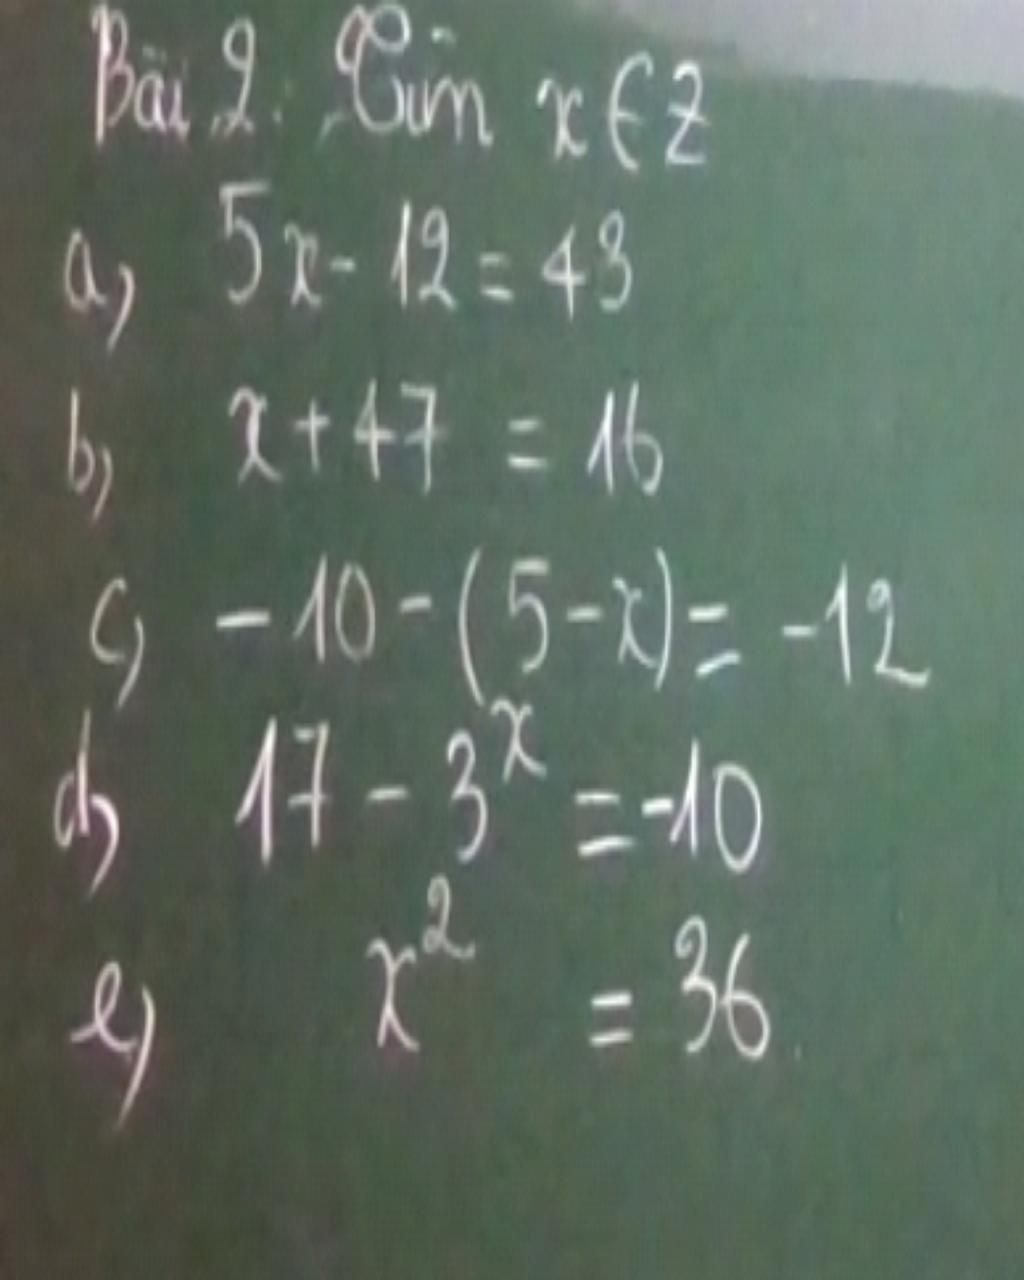 Bài 2. Tìm x ∈ Z
a, 5x - 12 = 43
b, x + 47 = 16
c, - 10 - (5 - x) = -12
d, 17 - 3^x = -10
e, x² = 36